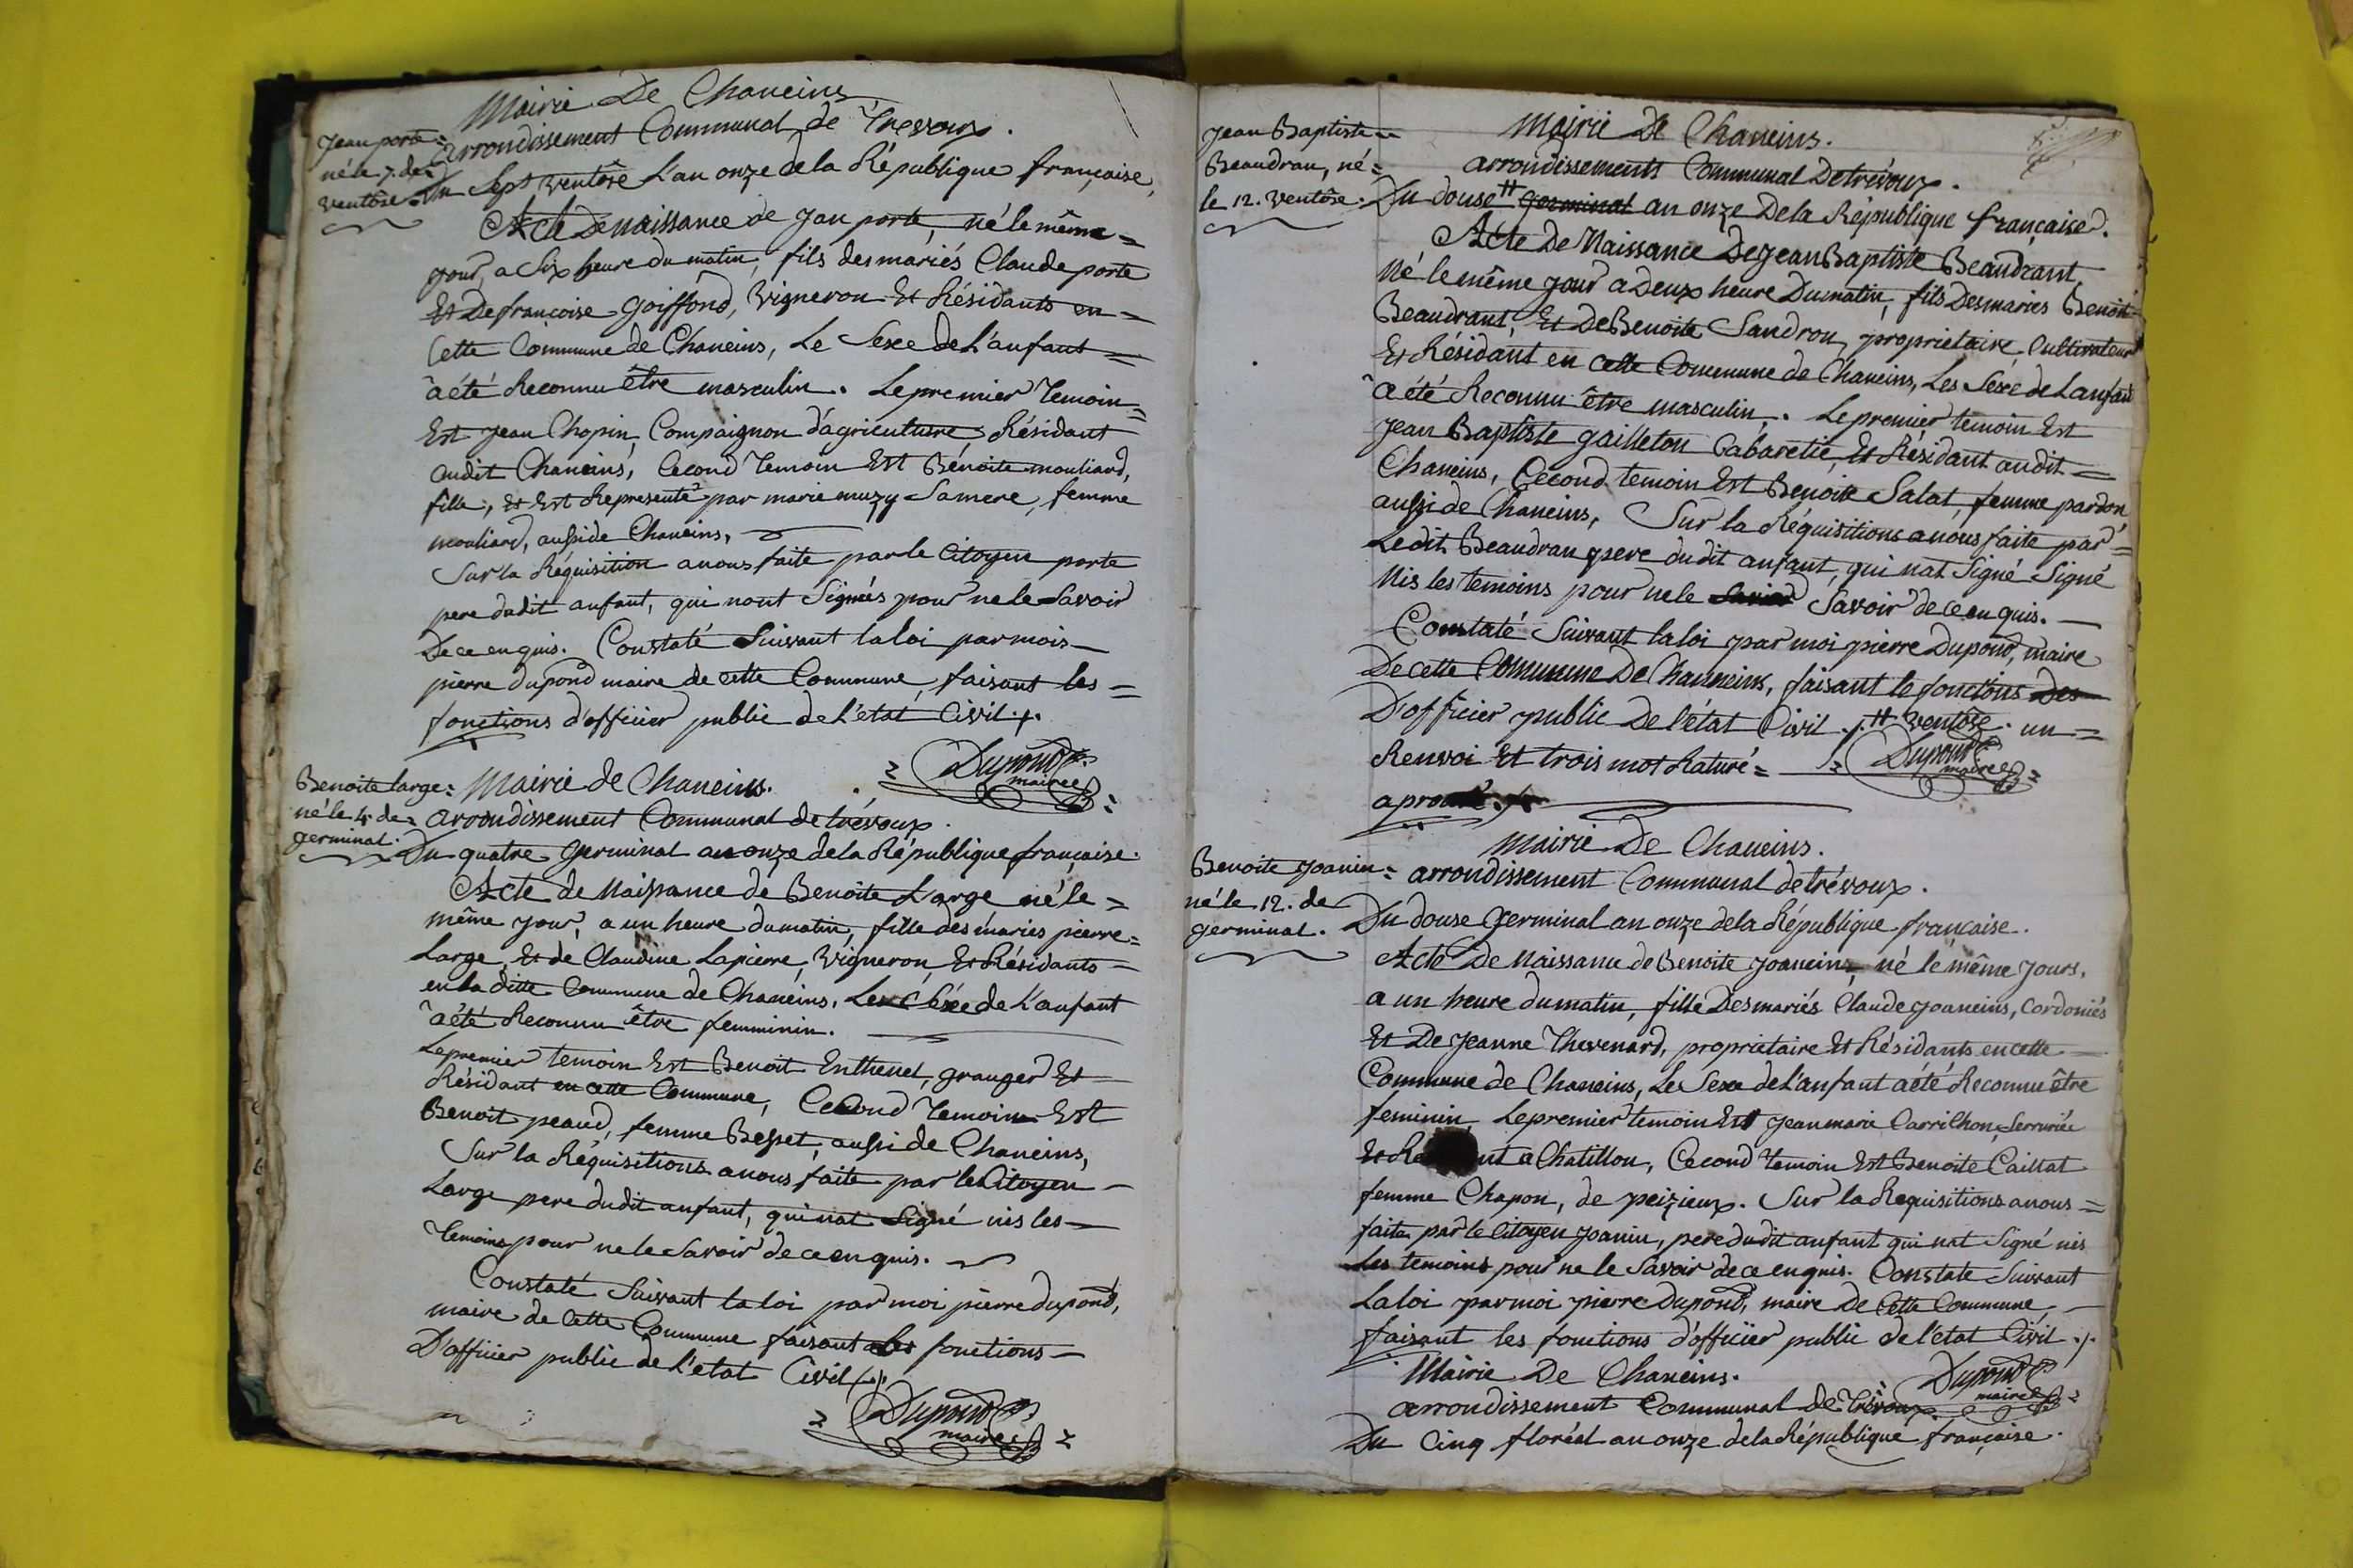 Mairie De Chaneins
Jean porte=
né le 7. de=
ventôse.
arrondissement Communal de Trévoux.
Du Sept ventôse L'an onze de la République française,
Acte De naissance de Jan porte, né le même=
jour, a Six heure du matin, fils des mariés Claude porte
Et De francoise Goiffond, Vigneron Et Résidants en=
Cette Commune de Chaneins, Le Sexe de L'anfant=
à été Reconnu être masculin. Le premier Temoin=
Est Jean Chopin, Compaignon d'agriculture, Résidant
audit Chaneins, Cecond Temoin Est Bénoite mouliard,
fille, Et Est Représenté par marie muzy Sa mere, femme
mouliard, aussi de Chaneins,
Sur la Réquisition a nous faite par le Citoyen porte
pere dudit anfant, qui nont Signés pour ne le Savoir
De ce enquis. Constaté Suivant la loi par mois
pierre dupond maire de cette Commune, faisant les=
fonctions d'officier public de L'etat Civil./.
Dupond
maire
Benoite large=
né le 4. de=
germinal.
Mairie de Chaneins.
arrondissement Communal de trévoux.
Du quatre Germinal an onze de la République française.
Acte de Naissance de Benoite Large né le=
même jour, a un heure du matin, fille des mariés pierre=
Large, Et de Claudine Lapierre, Vigneron Et Résidants
en la ditte Commune de Chaneins. Les Céxe de L'anfant
à été Reconnu être femminin.
Le premier temoin Est Benoit Enthenet, granger Et
Résidant en cette Commune, Cecond Temoin Est
Benoit peaud, femme Besset, aussi de Chaneins,
Sur la Réquisitions a nous faite par le Citoyen
Large pere dudit anfant, qui nat Signé nis les
Temoins pour ne le Savoir de ce enquis.
Constaté Suivant la loi par moi pierre dupond,
maire de Cette Commune faisant les fonctions
D'officier public de L'etat Civil./.
Dupond
maire
Jean Baptiste=
Beaudran, né=
le 12. ventôse.
Mairie De Chaneins.
arrondissements Communal De trévoux.
Du douse # germinal an onze De la République française.
Acte De Naissance De Jean Baptiste Beaudrant
Né le même jour a Deux heure Du matin, fils Des mariés Benoit
Beaudrant, Et De Benoite Sandron, proprietaire, Cultivateur
Et Résidant en cette Commune de Chaneins, Les Séxe de Lanfant
à été Reconnu être masculin. Le premier temoin Est
Jean Baptiste gailleton Cabaretié, Et Résidant audit=
Chaneins, Cecond temoin Est Benoite Salat, femme pardon
aussi de Chaneins, Sur la Réquisitions a nous faite par=
Ledit Beaudran pere dudit anfant, qui nat Signé Signé
Nis les temoins pour ne le Savoir de ce enquis.
Constaté Suivant la loi par moi pierre Dupond, maire
De cette Commune De Channeins, faisant le fonctions Des
D'officier public De l'état Civil ./. # ventôse. un=
Renvoi Et trois mot Raturé=
Dupond
maire
Mairie De Chaneins.
Benoite Joanin=
né le 12. de
germinal.
arrondissement Communal de trévoux.
Du douse Germinal an onze de la République française.
Acte De Naissance de Benoite Joaneins, né le même Jours.
a un heure du matin, fille Des mariés Claude Joaneins, Cordoniés
Et De Jeanne Thevenard, proprietaire Et Résidants en cette
Commune de Chaneins, Le Sexe de L'anfant a été Reconnu être
feminin Le premier temoin Est Jean marie Carrilhon, Serrurié
a Chatillon, Cecond Temoin Est Benoite Caillat
femme Chapon, de peizieux. Sur la Requisitions a nous=
faite par le Citoyen Joanin, pere dudit anfant qui nat Signé nis
Les temoins pour ne le Savoir de ce enquis. Constate Suivant
La loi par moi pierre Dupond, maire De Cette Commune,
faisant les fonctions d'officier public de l'état Civil ./.
Dupond
maire
Mairie De Chaneins.
arrondissement Communal de Trévoux.
Du Cinq floréal an onze de la République française.